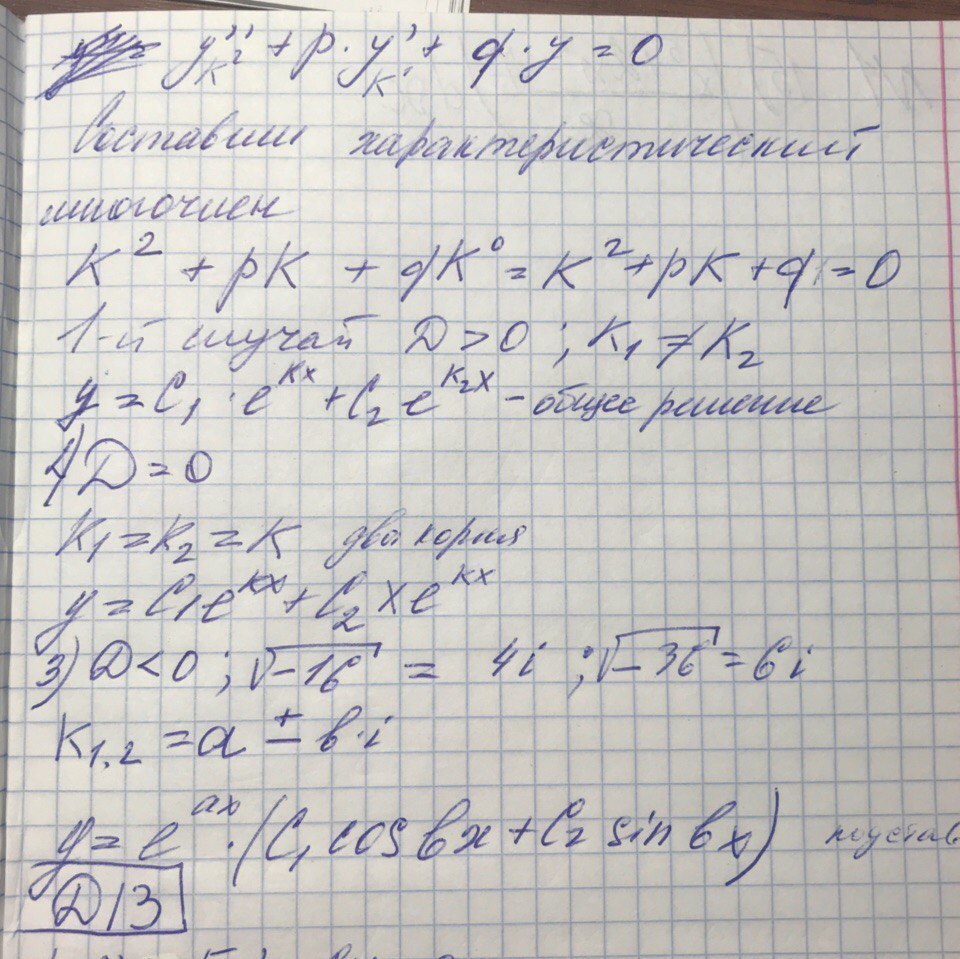 y'' + p·y' + q·y = 0
к² к
Составим характеристический
многочлен
K² + pK + qK⁰ = K² + pK + q = 0
1-й случай D > 0 ; K₁ ≠ K₂
y = C₁·e^{Kx} + C₂e^{K₂x} - общее решение
D = 0
K₁ = K₂ = K два корня
y = C₁e^{Kx} + C₂xe^{Kx}
3) D < 0 ; √-16 = 4i ; √-36 = 6i
K₁,₂ = a ± b·i
y = e^{ax}·(C₁ cos bx + C₂ sin bx)
D/З